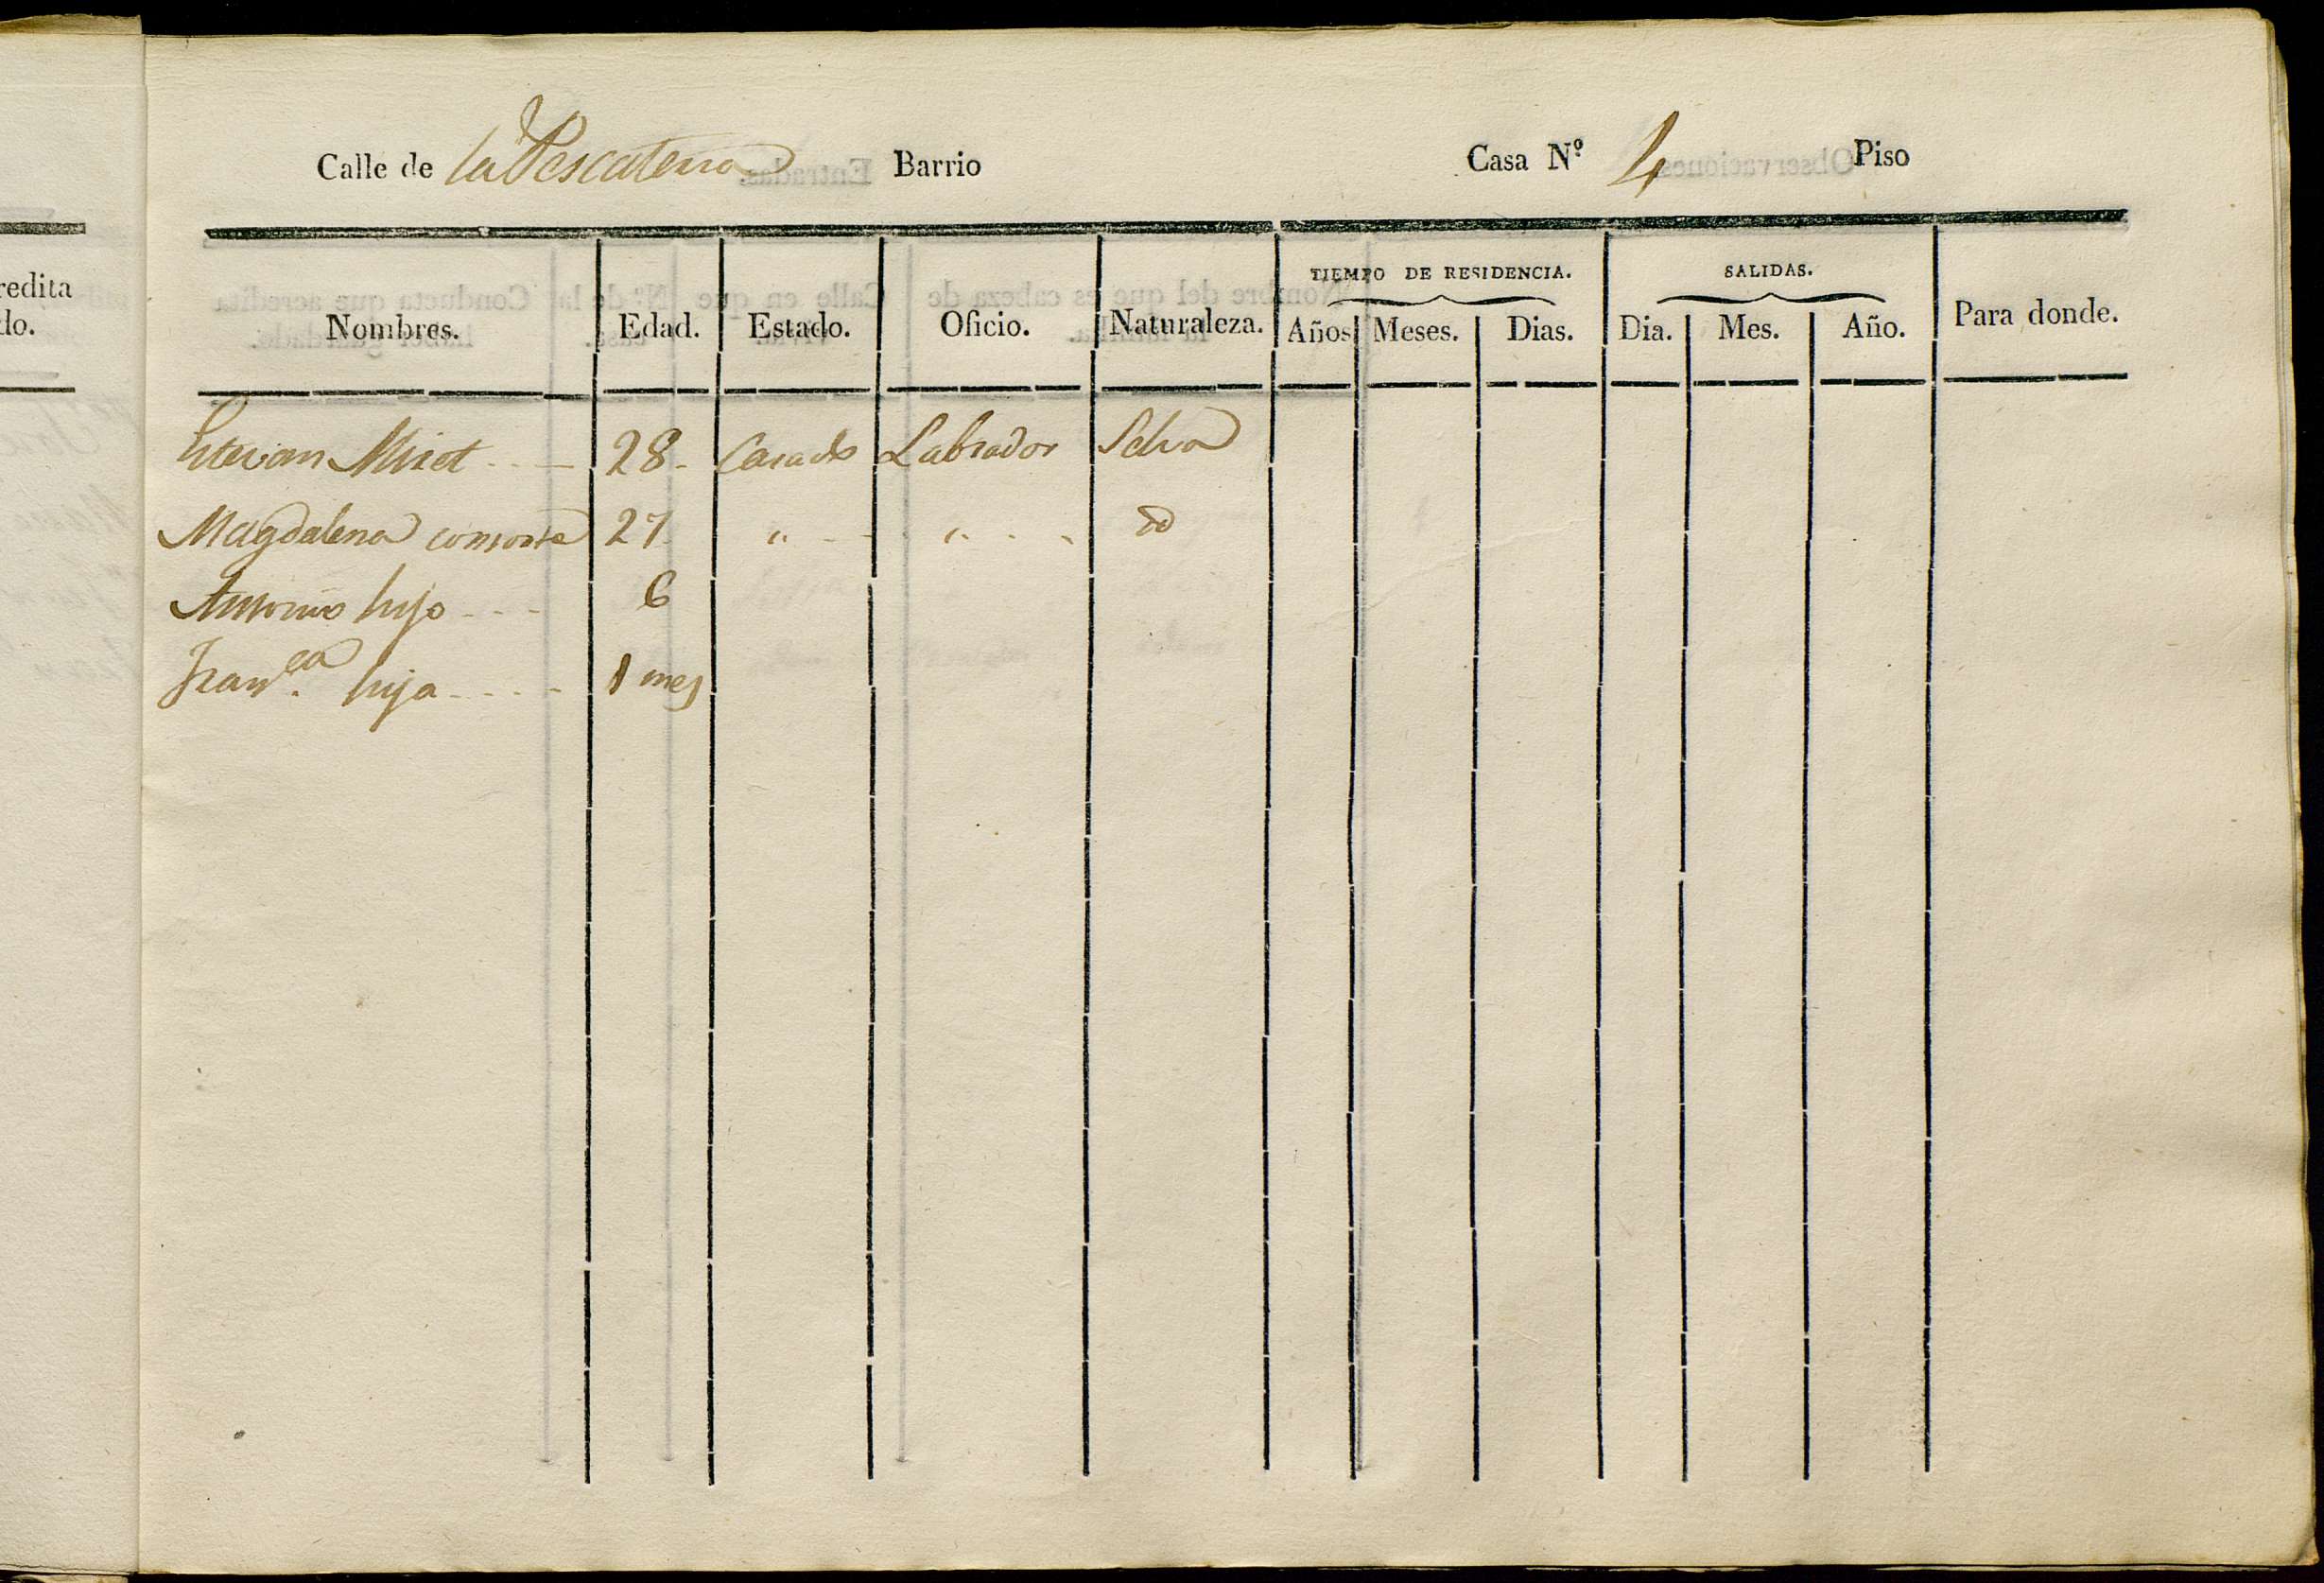 redita
do.
Calle de la Pescateria Barrio Casa N.º 4 Piso
Nombres. Edad. Estado. Oficio. Naturaleza. TIEMPO DE RESIDENCIA. Años Meses. Dias. SALIDAS. Dia. Mes. Año. Para donde.
Estevan Miret 28 Casado Labrador Selva
Magdalena consorte 27 " " id
Antonio hijo 6
Fran.ca hija 1 mes